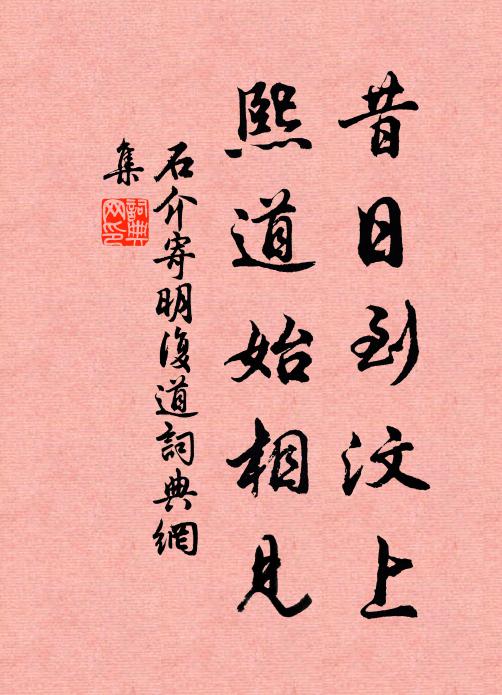 昔日到汶上
熙道始相見
石介寄明復道詞典網
集
詞典網印